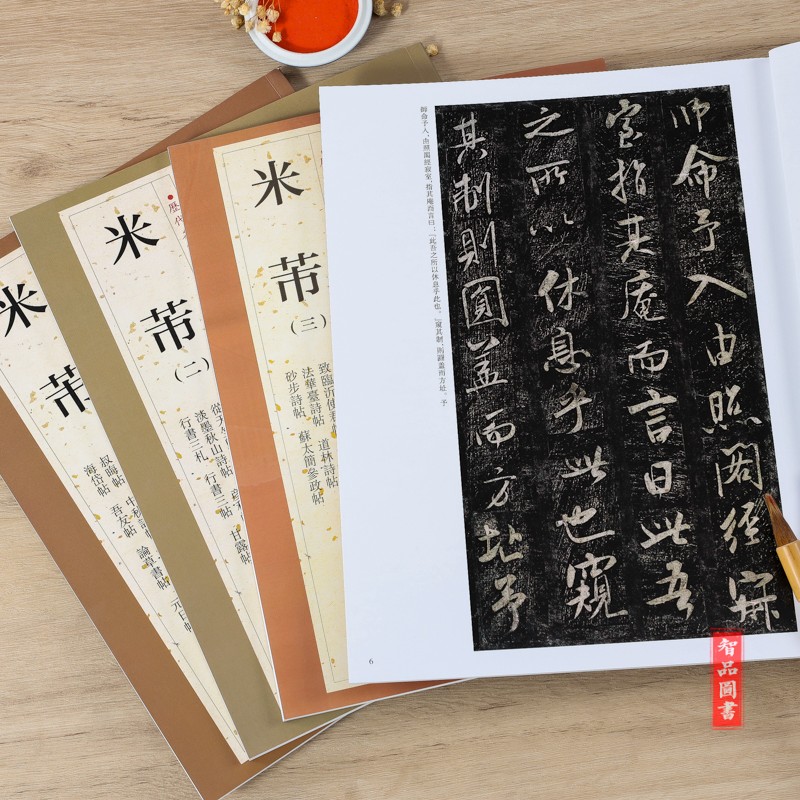 師命予入由照閣經寂
室指其庵而言曰此吾
之所以休息乎此也窺
其制則圓蓋而方址予
師命予入，由照閣經寂室，指其庵而言曰：『此吾之所以休息乎此也。』窺其制，則圓蓋而方址。予
6
米芾
（三）
致臨沂使君
法華臺詩帖 道林詩帖
砂步詩帖 蘇太簡參政帖
歷代
米芾
（二）
淡墨秋山詩帖
行書三札 行書三帖 甘露帖
米芾
叔晦帖 中秋詩
海岱帖 吾友帖 論草書帖 元日帖
智品圖書